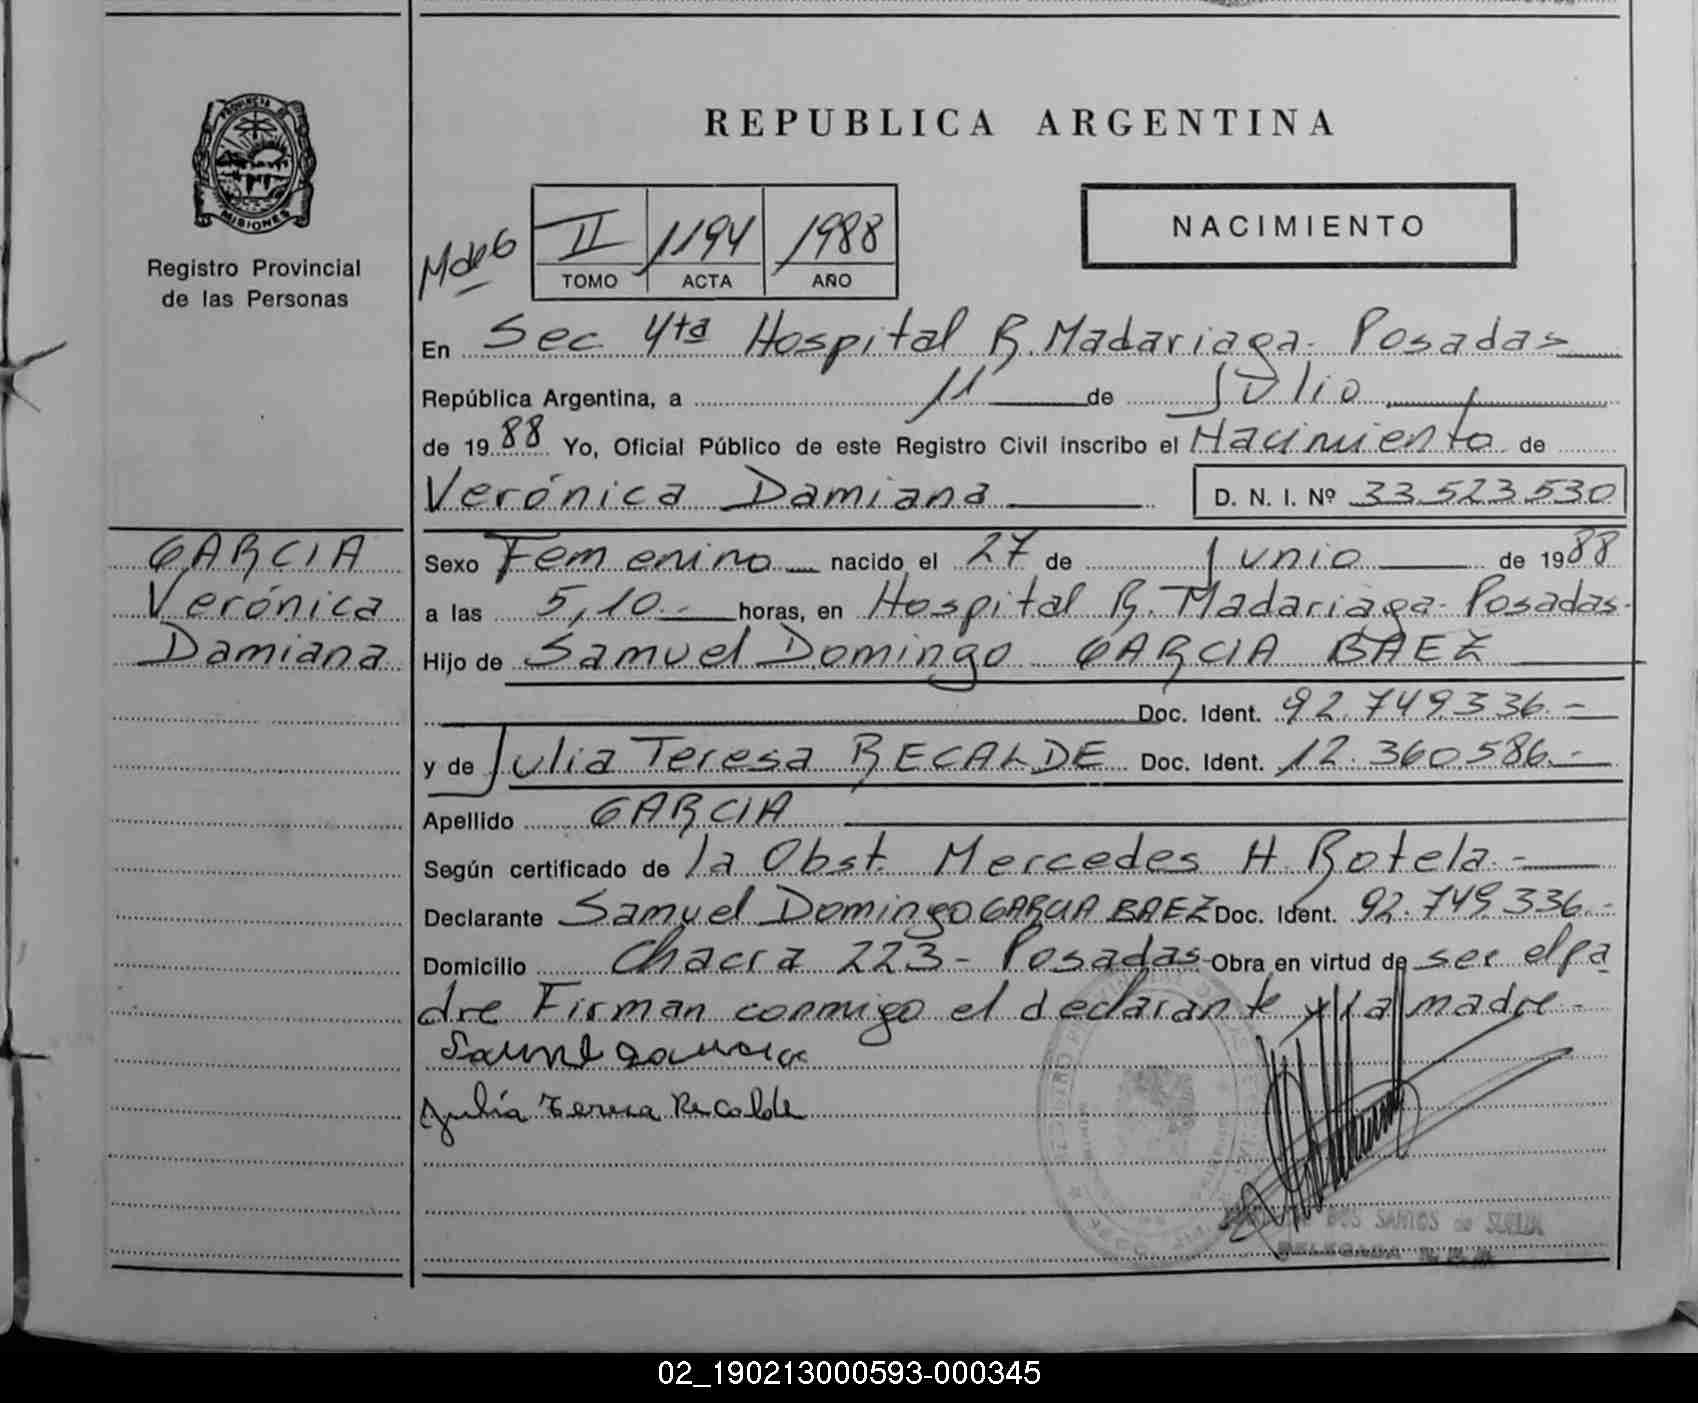 PROVINCIA DE
MISIONES
Registro Provincial
de las Personas
REPUBLICA ARGENTINA
NACIMIENTO
II 1194 1988
TOMO ACTA AÑO
En Sec 4ta Hospital R. Madariaga - Posadas
República Argentina, a 11 de Julio
de 1988 Yo, Oficial Público de este Registro Civil inscribo el Nacimiento de
Verónica Damiana D. N. I. Nº 33.523.530
GARCIA
Verónica
Damiana
Sexo Femenino nacido el 27 de Junio de 1988
a las 5,10.- horas, en Hospital R. Madariaga - Posadas-
Hijo de Samuel Domingo GARCIA BAEZ
Doc. Ident. 92.749.336.-
y de Julia Teresa RECALDE Doc. Ident. 12.360.586.-
Apellido GARCIA
Según certificado de la Obst. Mercedes H. Rotela.-
Declarante Samuel Domingo GARCIA BAEZ Doc. Ident. 92.749.336.-
Domicilio Chacra 223 - Posadas - Obra en virtud de ser el pa
dre Firman conmigo el declarante y la madre -
Julia Teresa Recalde
DOS SANTOS de
DELEGADA
02_190213000593-000345